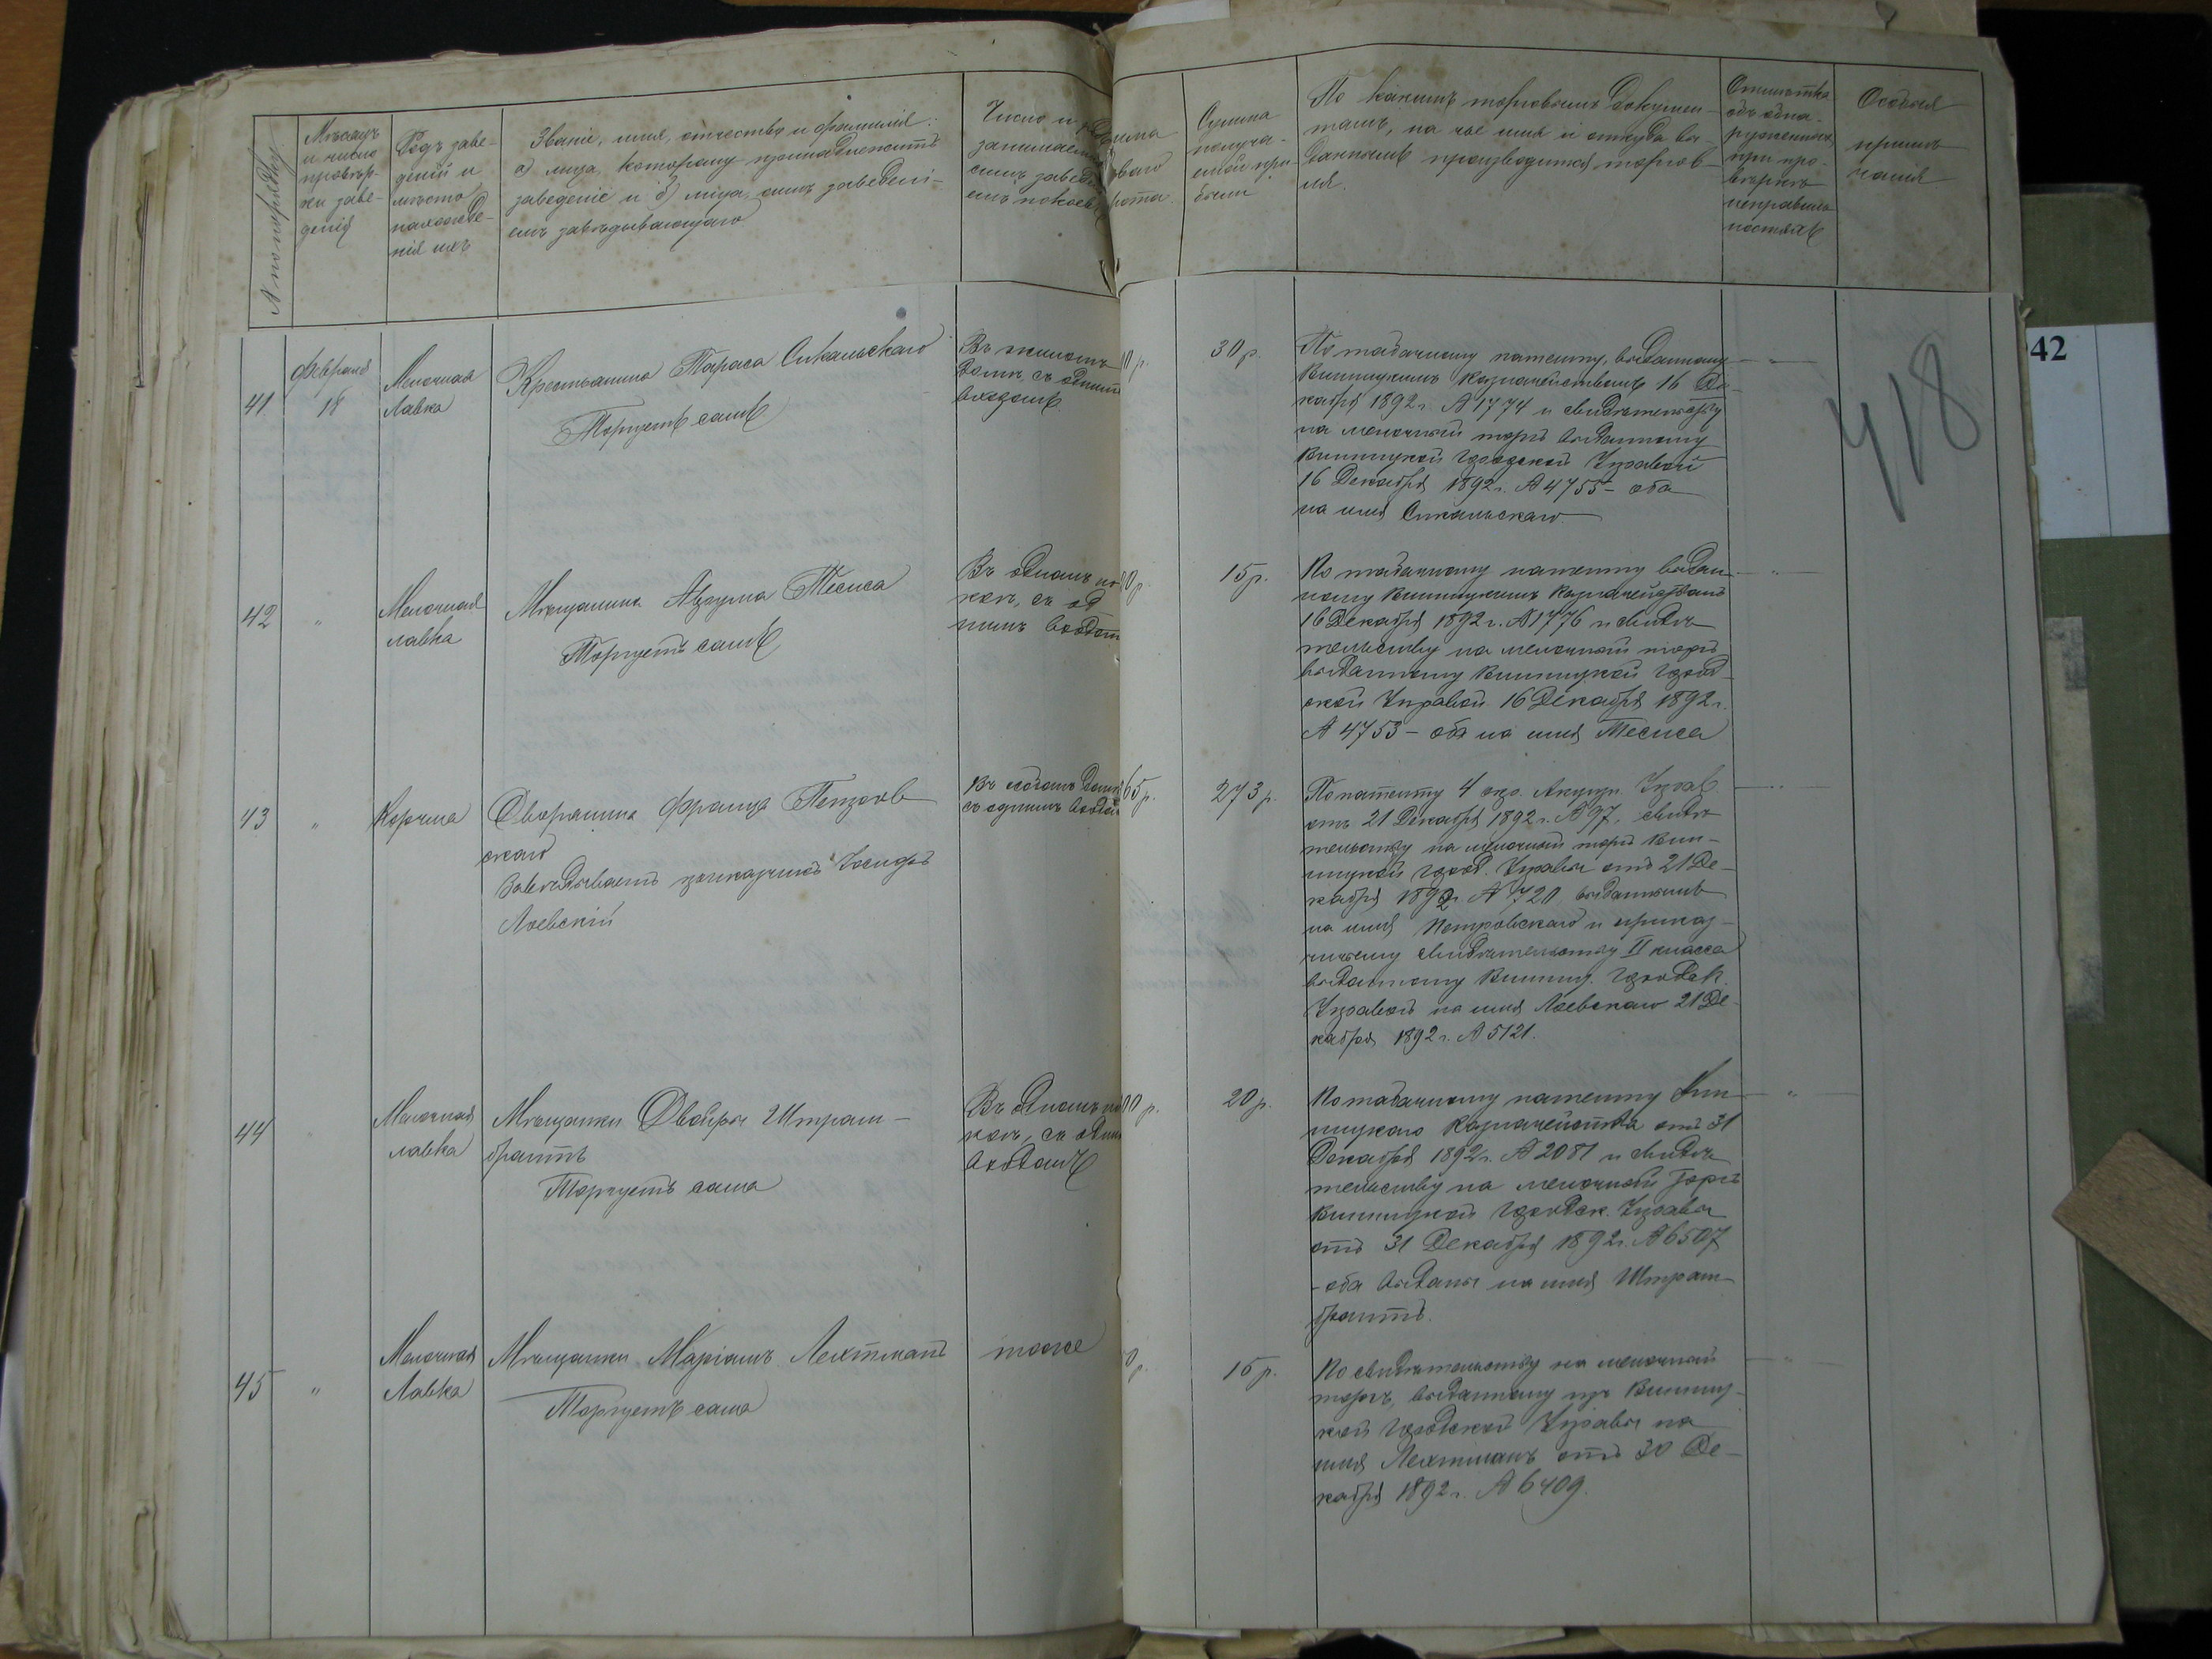 № по порядку.
Мѣсяцъ
и число
провѣр-
ки заве-
деній
Родъ заве-
деній и
мѣсто
нахожде-
нія ихъ
Званіе, имя, отчество и фамилія:
а) лица, которому принадлежитъ
заведеніе и б) лица, симъ заведені-
емъ завѣдывающаго
Число и
занимаем
симъ завед
емъ покоев
Сумма
получа-
емой при-
были
По какимъ торговымъ докумен-
тамъ, на чье имя и откуда вы-
даннымъ производится торгов-
ля.
Отмѣтка
объ обна-
руженныхъ
при про-
вѣркѣ
неправиль-
ностяхъ
Особыя
примѣ-
чанія
42
418
41
Февраля
18
Мелочная
Лавка
Крестьянина Тараса Сикальскаго
Торгуетъ самъ
Въ жиломъ
домѣ съ однимъ
входомъ
0 р.
30 р.
По табачному патенту, выданному
Винницкимъ Казначействомъ 16 Де-
кабря 1892 г. № 1774 и свидѣтельству
на мелочный торгъ выданному
Винницкой Городской Управой
16 Декабря 1892 г. № 4755 - оба
на имя Сикальскаго.
42
"
Мелочная
лавка
Мѣщанина Азрума Тесиса
Торгуетъ самъ
Въ одномъ по
коѣ, съ од
нимъ входом
0 р.
15 р.
По табачному патенту выдан-
ному Винницкимъ Казначействомъ
16 Декабря 1892 г. № 1776 и свидѣ-
тельству на мелочный торгъ
выданному Винницкой Город-
ской Управой 16 Декабря 1892 г.
№ 4753 - оба на имя Тесиса
43
"
Корчма
Дворянина Франца
скаго
Завѣдываетъ прикащикъ Іосифъ
Лоевскій
Въ особомъ дом
съ однимъ входом
65 р.
273 р.
По патенту 4 окр. Акцизн. Управ.
отъ 21 Декабря 1892 г. № 97, свидѣ-
тельству на мелочный торгъ Вин-
ницкой Город. Управы отъ 21 Де-
кабря 1892 г. № 4720 выданнымъ
на имя Петровскаго и приказ-
чичьему свидѣтельству II класса
выданному Винниц. Городск.
Управой на имя Лоевскаго 21 Де-
кабря 1892 г. № 5121.
44
Мелочная
лавка
Мѣщанки Двойры Штрам-
брантъ
Торгуетъ сама
Въ одномъ по
коѣ, съ одним
входомъ
00 р.
20 р.
По табачному патенту Вин-
ницкаго Казначейства отъ 31
Декабря 1892 г. № 2081 и свидѣ-
тельству на мелочный Торгъ
Винницкой Городск. Управы
отъ 31 Декабря 1892 г. № 6507
- оба выданы на имя Штрам-
брантъ.
45
"
Мелочная
Лавка
Мѣщанки Маріамъ Лехтманъ
Торгуетъ сама
тоже
0 р.
15 р.
По свидѣтельству на мелочный
торгъ, выданному изъ Винниц-
кой Городской Управы на
имя Лехтманъ отъ 30 Де-
кабря 1892 г. № 6409.